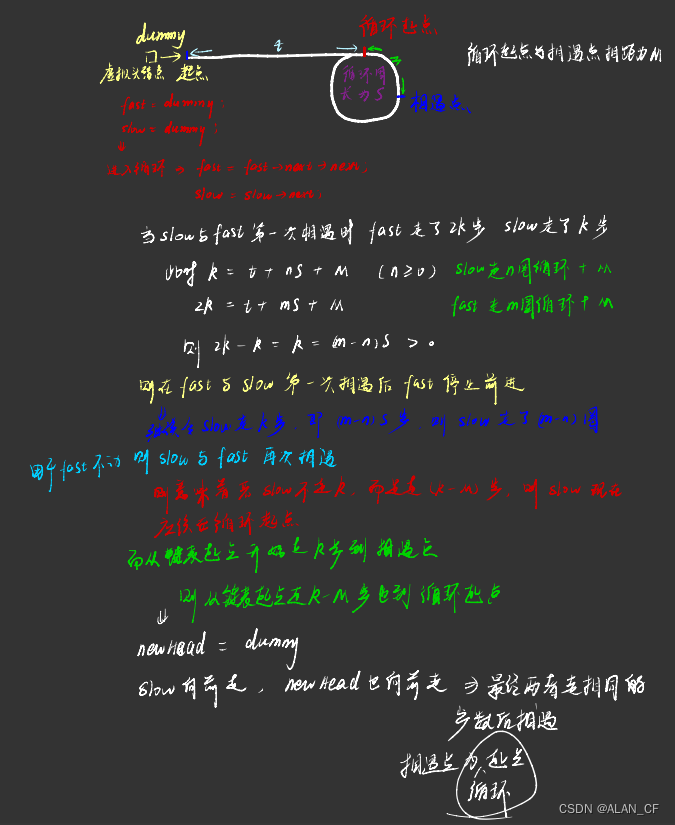 dummy
t
循环起点
循环起点与相遇点相距为M
虚拟头结点 起点
循环周
长为S
相遇点
fast = dummy
slow = dummy
进入循环 fast = fast->next->next,
slow = slow->next,
当slow与fast第一次相遇时 fast走了2k步 slow走了k步
此时 k = t + nS + M (n≥0) slow走n圈循环 + M
2k = t + mS + M fast走m圈循环 + M
则 2k-k = k = (m-n)S > 0
则在fast与slow第一次相遇后 fast停止前进
继续令slow走k步, 即(m-n)S步, 则slow走了(m-n)圈
由于fast不动 则slow与fast再次相遇
slow不走k, 而是走(k-M)步, 则slow现在
应该在循环起点
而从链表起点开始走k步到相遇点
则从链表起点走k-M步也到循环起点
newHead = dummy
slow向前走, newHead也向前走 ⇒ 最终两者走相同的
步数后相遇
相遇点为起点
循环
CSDN @ALAN_CF